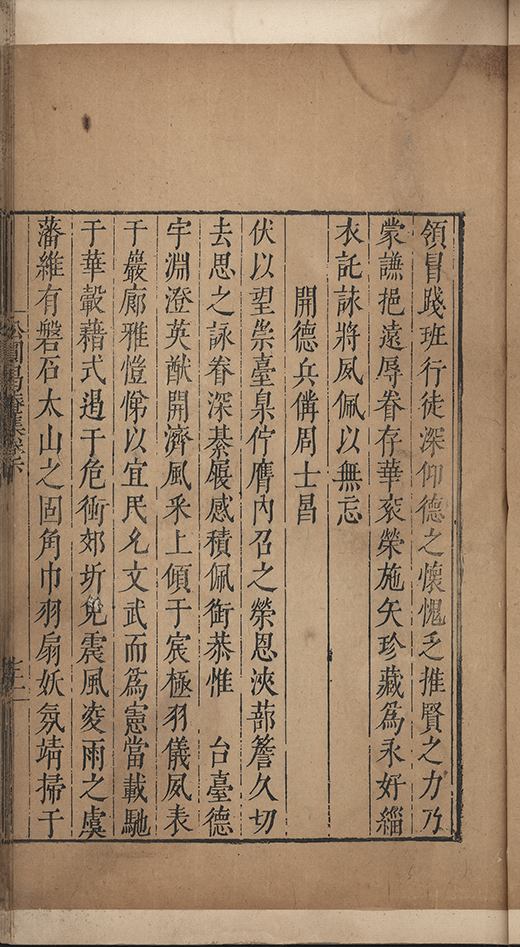 領冒踐班行徒深仰德之懷愧乏推賢之力乃
蒙謙挹遠辱眷存華衮榮施矢珍藏爲永好緇
衣託詠將夙佩以無忘
開德兵備周士昌
伏以望崇臺臬佇膺內召之榮恩浹蔀簷久切
去思之詠眷深綦履感積佩銜恭惟 台臺德
宇淵澄英猷開濟風采上傾于宸極羽儀夙表
于巖廊雅愷悌以宜民允文武而爲憲當載馳
于華轂藉式遏于危衝郊圻免震風凌雨之虞
藩維有磐石太山之固角巾羽扇妖氛靖掃于